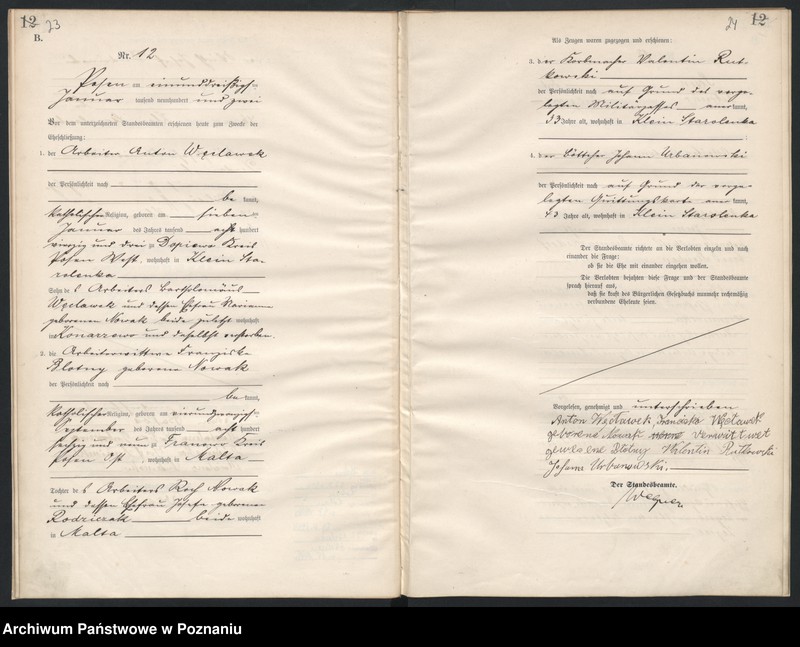 12 23
B.
Nr. 12
Posen am einunddreißigsten
Januar tausend neunhundert und zwei
Vor dem unterzeichneten Standesbeamten erschienen heute zum Zwecke der
Eheschließung:
1. der Arbeiter Anton Węclawek
der Persönlichkeit nach
be kannt,
katholischer Religion, geboren am sieben
Januar des Jahres tausend acht hundert
vierzig und drei Dopiewo Kreis
Posen West, wohnhaft in Klein Sta-
rolenka
Sohn des Arbeiters Bartholomäus
Węclawek und dessen Ehefrau Marianna
geborenen Nowak beide zuletzt wohnhaft
in Konarzewo und daselbst verstorben.
2. die Arbeiterwittwe Franziska
Blotny geborene Nowak
der Persönlichkeit nach
be kannt,
katholischer Religion, geboren am vierundzwanzigsten
September des Jahres tausend acht hundert
sechzig und neun Kreis
Posen Ost, wohnhaft in Malta
Tochter des Arbeiters Roch Nowak
und dessen Ehefrau Josefa geborenen
Rodziczak beide wohnhaft
in Malta
24 12
Als Zeugen waren zugezogen und erschienen:
3. der Korbmacher Valentin Rut-
kowski
der Persönlichkeit nach auf Grund des vorge-
legten Militärpasses anerkannt,
53 Jahre alt, wohnhaft in Klein Starolenka
4. der Böttcher Johann Urbanowski
der Persönlichkeit nach auf Grund der vorge-
legten Quittungskarte anerkannt,
43 Jahre alt, wohnhaft in Klein Starolenka
Der Standesbeamte richtete an die Verlobten einzeln und nach
einander die Frage:
ob sie die Ehe mit einander eingehen wollen.
Die Verlobten bejahten diese Frage und der Standesbeamte
sprach hierauf aus,
daß sie kraft des Bürgerlichen Gesetzbuchs nunmehr rechtmäßig
verbundene Eheleute seien.
Vorgelesen, genehmigt und unterschrieben
Anton Węcławek, Franciska Węcławek
geborene Nowak verwittwet
gewesene Blotny Walentin Rutkowski
Johann Urbanowski.
Der Standesbeamte.
Archiwum Państwowe w Poznaniu